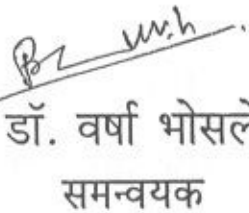 डॉ. वर्षा भोसले
समन्वयक